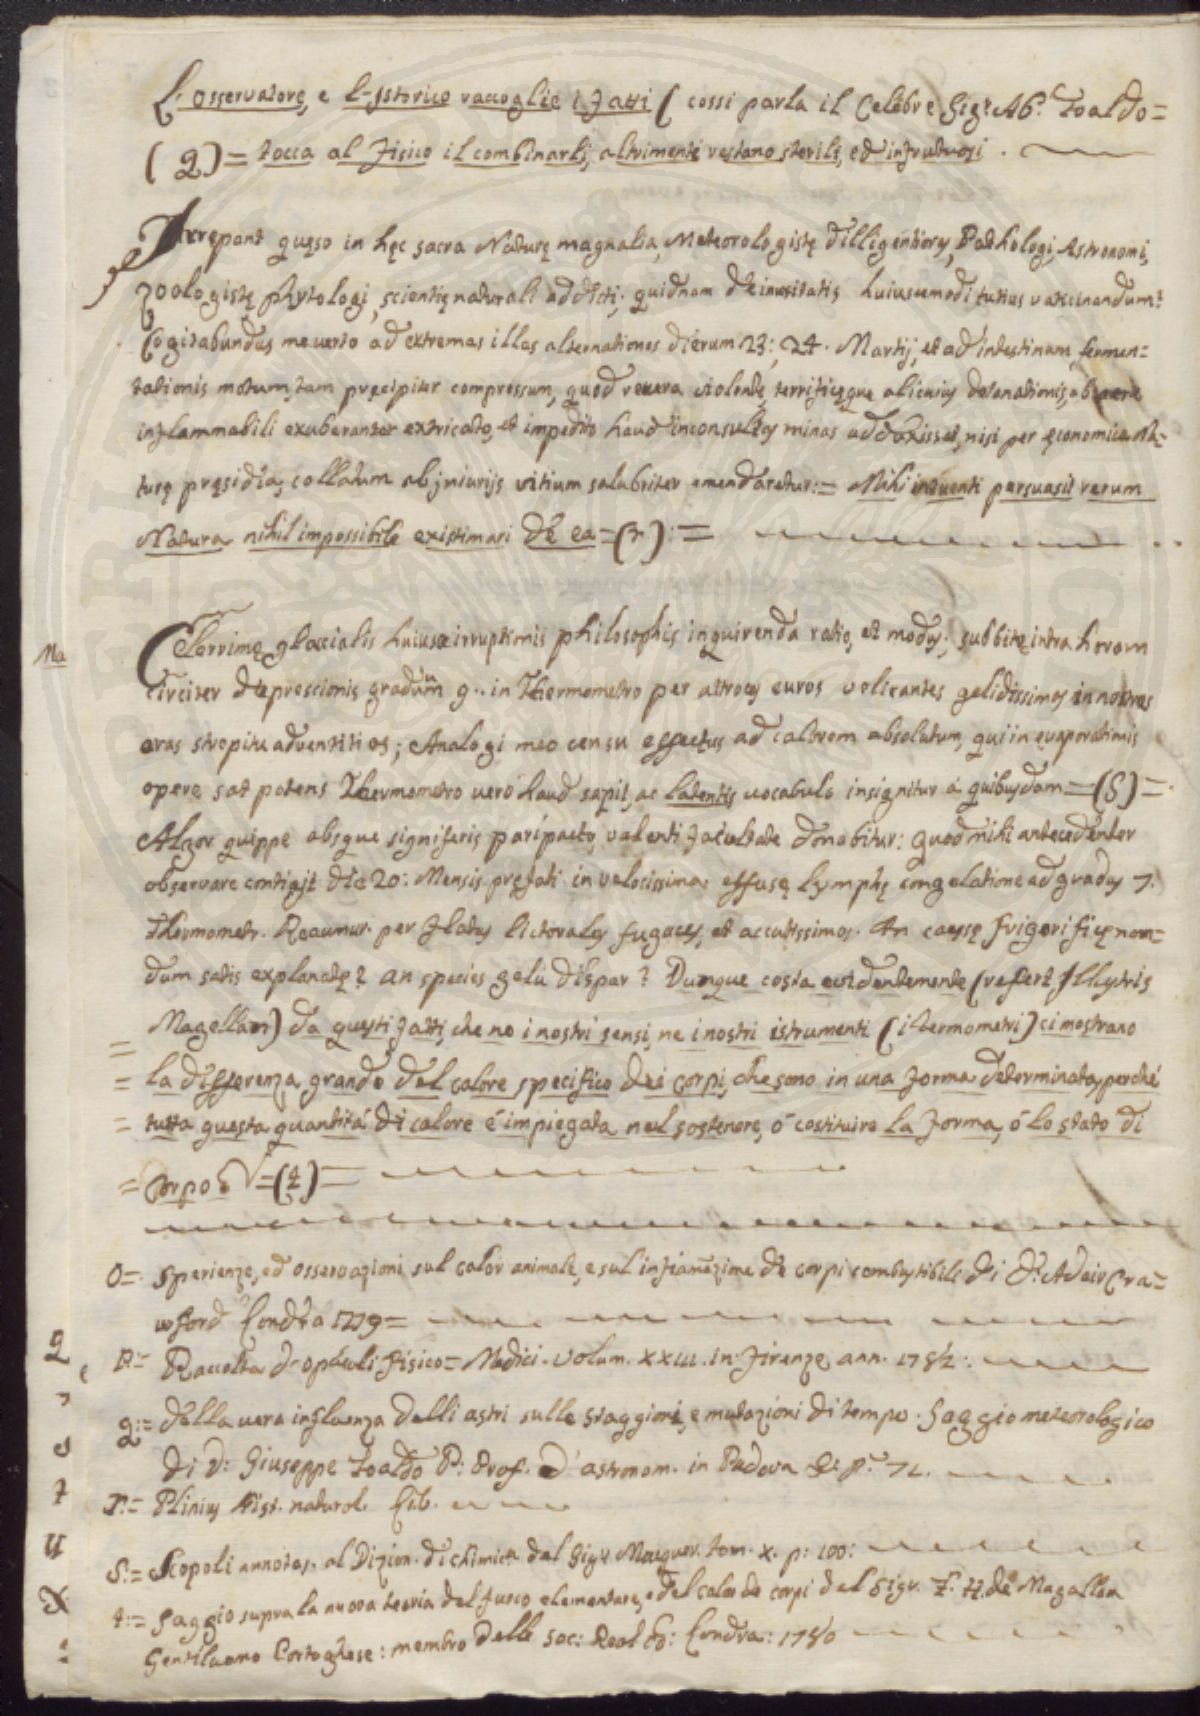 L'osservatore, e l'Istorico raccoglie i fatti ( cossi parla il Celebre Sig.r Ab.e Toaldo=
( q )= tocca al Fisico il combinarli, altrimenti restano sterili, ed infrutuosi .
Irrepant quęso in hęc sacra Naturę magnalia, Meteorologistę dilligentiory, Pathologi, Astronomi,
zoologistę phytologi, scientię naturali addicti; quidnam de inusitatis huiuscemodi tutius vaticinandum?
Cogitabundus me verto ad extremas illas alternationes dierum 23: 24. Martij, et ad intestinum fermen=
tationis motum, tam pręcipiter compressum, quod revera violentę, terrificęque alicuius detonationis, ab aere
inflammabili exuberanter extricato, et impedito haud inconsultos minas adduxisset, nisi per ęconomica Na=
turę pręsidia, collatum ab injurijs vitium salubriter emendaretur:= Mihi intuenti persuasit rerum
Natura nihil impossibile existimari de ea =(r):=
Na
Celerrimę glacialis huiusce irruptionis philosophis inquirenda ratio, et modus; subbitę intra horam
circiter deprescionis gradum 9.. in Thermometro per atroces euros volicantes gelidissimos in nostras
oras strepitu adventitios; Analogi meo censu effectus ad calorem absolutum, qui in evaporationis
opere sat potens Thermometro vero haud sapit, ac latentis vocabulo insignitur á quibusdam =(S)=
Algor quippe absque signiferis pari pacto valenti facultate donabitur: quod mihi antecedenter
observare contigit die 20: Mensis pręfati in velocissima effusę lymphę congelatione ad gradus 7.
Thermometr. Reaumur. per flatus lictorales fugaces, et accutissimos. An causę frigorificę non=
dum satis explanatę? an species gelu dispar? Dunque costa evidentemente (refert Illustris
Magellan) da questi fatti, che ne i nostri sensi, ne i nostri istrumenti (i termometri) ci mostrano
= la differenza grande del calore specifico dei corpi, che sono in una forma determinata, perché
= tutta questa quantitá di calore é impiegata nel sostenere, ó costituire la forma, ó lo stato di
= Corpo =(t)=
O=. Sperienze, ed osservazioni sul calor animale, e sul infiamazione de corpi combustibili di D: Adair Cra=
wford Londra 1779=
P:= Raccolta d'opuscoli Fisico=Medici. Volum. XXIII. in Firenze ann. 1782:
q:= della vera influenza delli astri sulle staggioni, e mutazioni di tempo. Saggio meteorologico
di D: Giuseppe Toaldo P: Prof. d'astronom. in Padova
r:= Plinius Hist. natural. Lib.
S:= Scopoli annotaz. al Dizion. di chimica del Sigr. Macquer. tom. X. p: 100:
t:= Saggio supra la nuova teoria del fuoco elementare, e del calor de corpi del Sigr. F. H. de Magallan
Gentiluomo Portoghese: membro delle soc: Real di: Londra: 1780
q
r
s
t
u
X